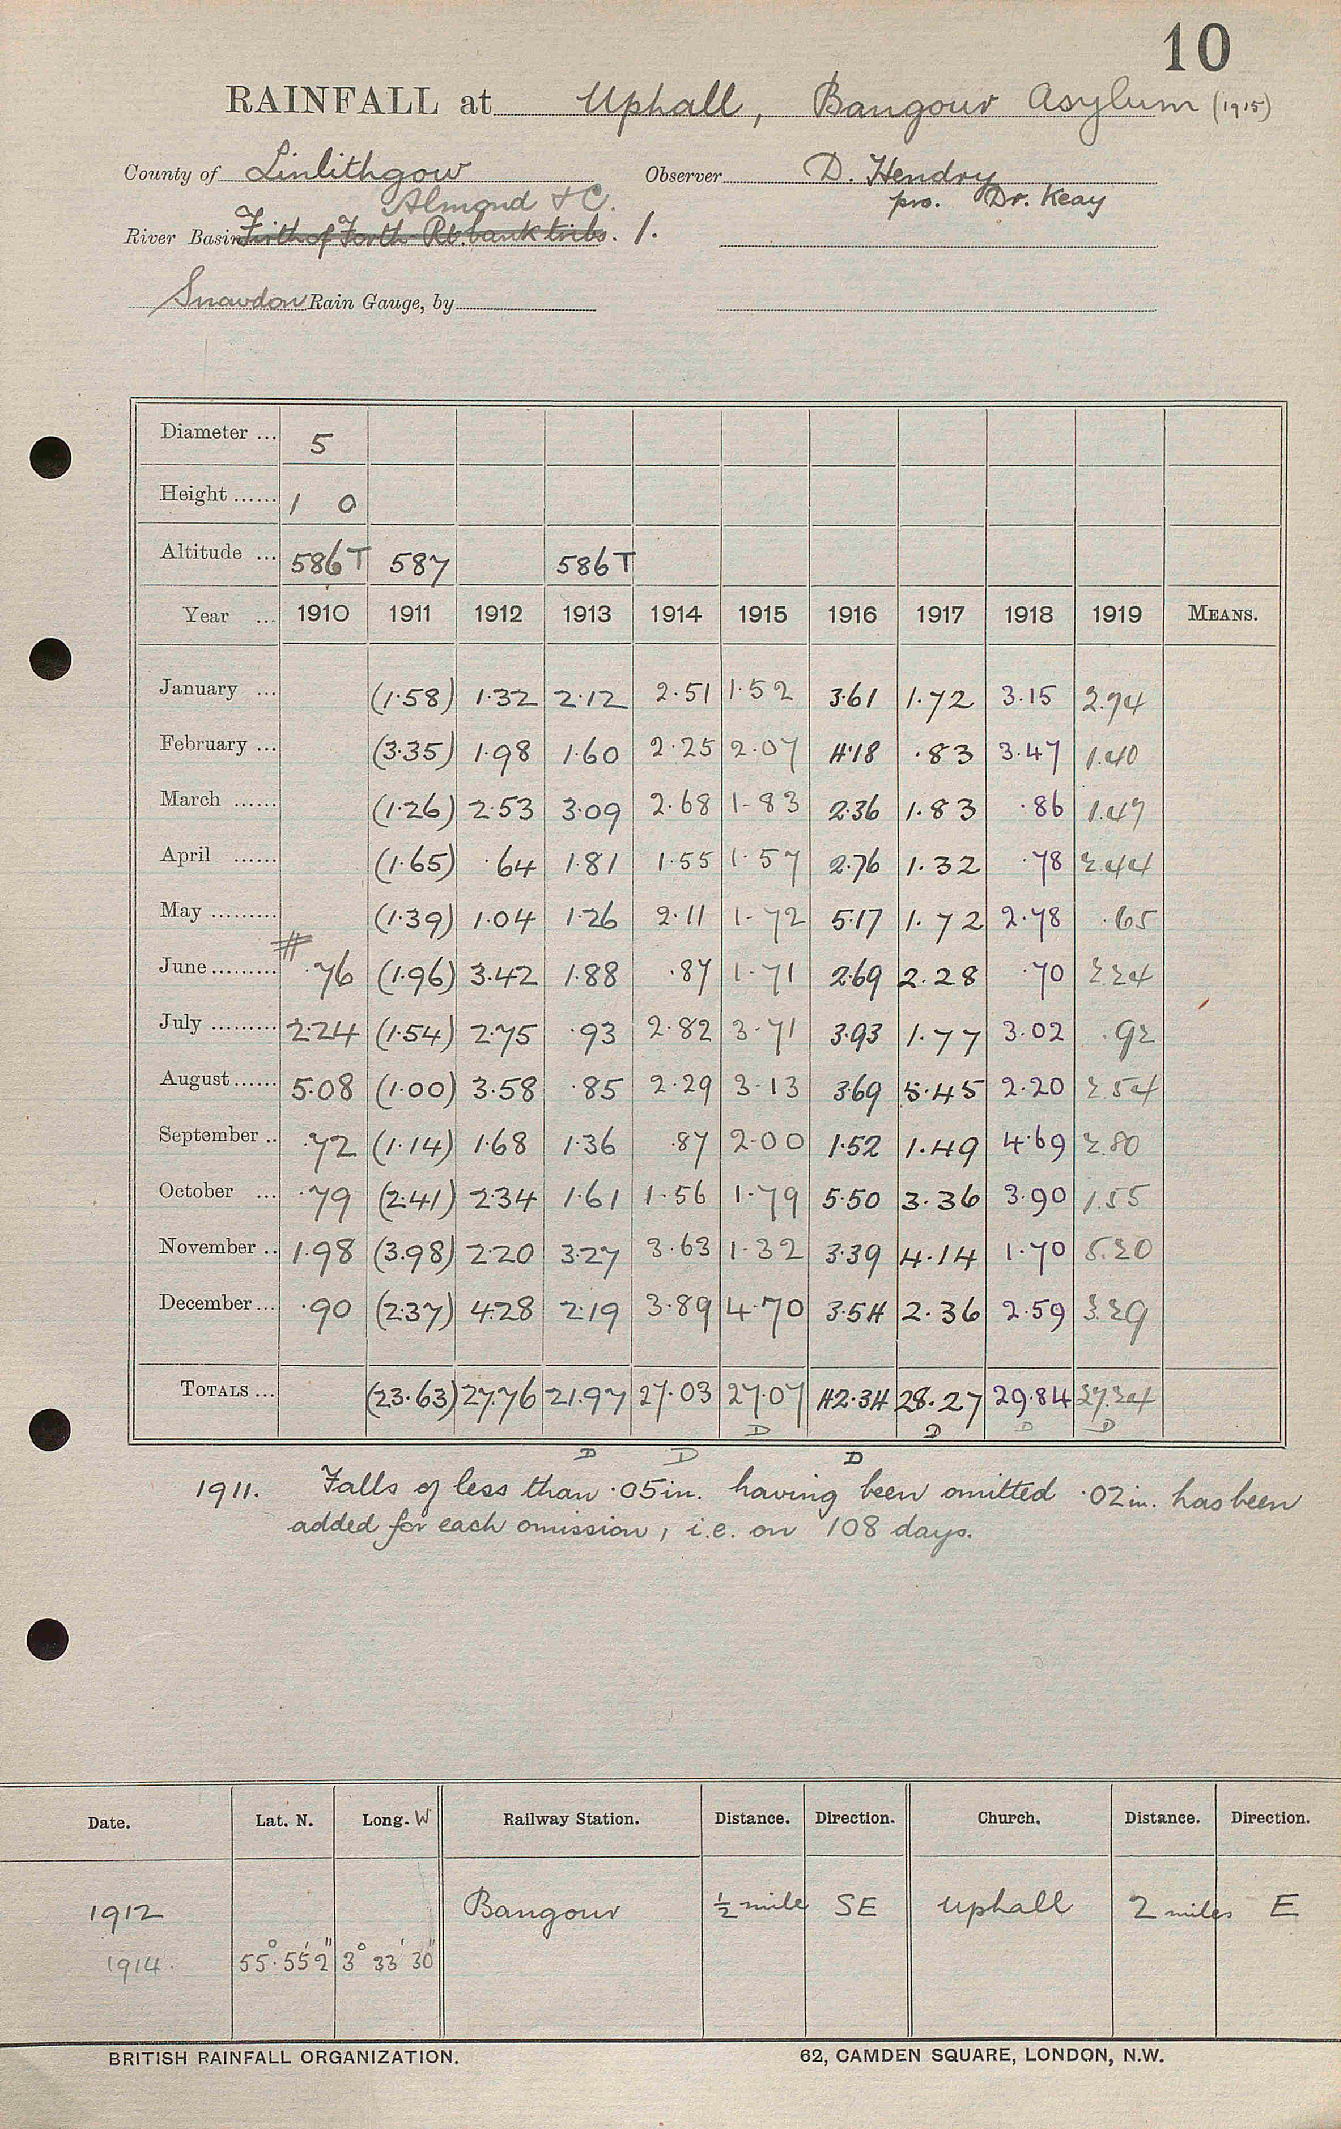 10
RAINFALL at Uphall, Bangour Asylum (1915)
County of Linlithgow Observer D. Hendry
Almond & C. pro. Dr. Keay
River Basin Firth of Forth Rt. bank tribs. 1.
Snowdon Rain Gauge, by
Diameter ... 5
Height ...... 1 0
Altitude ... 586T 587 586T
Year ... 1910 1911 1912 1913 1914 1915 1916 1917 1918 1919 MEANS.
January ... (1.58) 1.32 2.12 2.51 1.52 3.61 1.72 3.15 2.74
February ... (3.35) 1.98 1.60 2.25 2.07 4.18 .83 3.47 1.40
March ...... (1.26) 2.53 3.09 2.68 1.83 2.36 1.83 .86 1.47
April ...... (1.65) .64 1.81 1.55 1.57 2.76 1.32 .78 2.44
May ......... (1.39) 1.04 1.26 2.11 1.72 5.17 1.72 2.78 .65
June ......... # .76 (1.96) 3.42 1.88 .87 1.71 2.69 2.28 .70 2.24
July ......... 2.24 (1.54) 2.75 .93 2.82 3.71 3.93 1.77 3.02 .92
August ...... 5.08 (1.00) 3.58 .85 2.29 3.13 3.69 5.45 2.20 2.54
September .. .72 (1.14) 1.68 1.36 .87 2.00 1.52 1.49 4.69 2.80
October ... .79 (2.41) 2.34 1.61 1.56 1.79 5.50 3.36 3.90 1.55
November .. 1.98 (3.98) 2.20 3.27 3.63 1.32 3.39 4.14 1.70 5.20
December ... .90 (2.37) 4.28 2.19 3.89 4.70 3.54 2.36 2.59 3.29
TOTALS ... (23.63) 27.76 21.97 27.03 27.07 42.34 28.27 29.84 27.24
D D D D D D D
1911. Falls of less than .05 in. having been omitted .02 in. has been
added for each omission, i.e. on 108 days.
Date. Lat. N. Long. W Railway Station. Distance. Direction. Church. Distance. Direction.
1912 Bangour ½ mile SE Uphall 2 miles E
1914. 55° 55' 2" 3° 33' 30"
BRITISH RAINFALL ORGANIZATION. 62, CAMDEN SQUARE, LONDON, N.W.